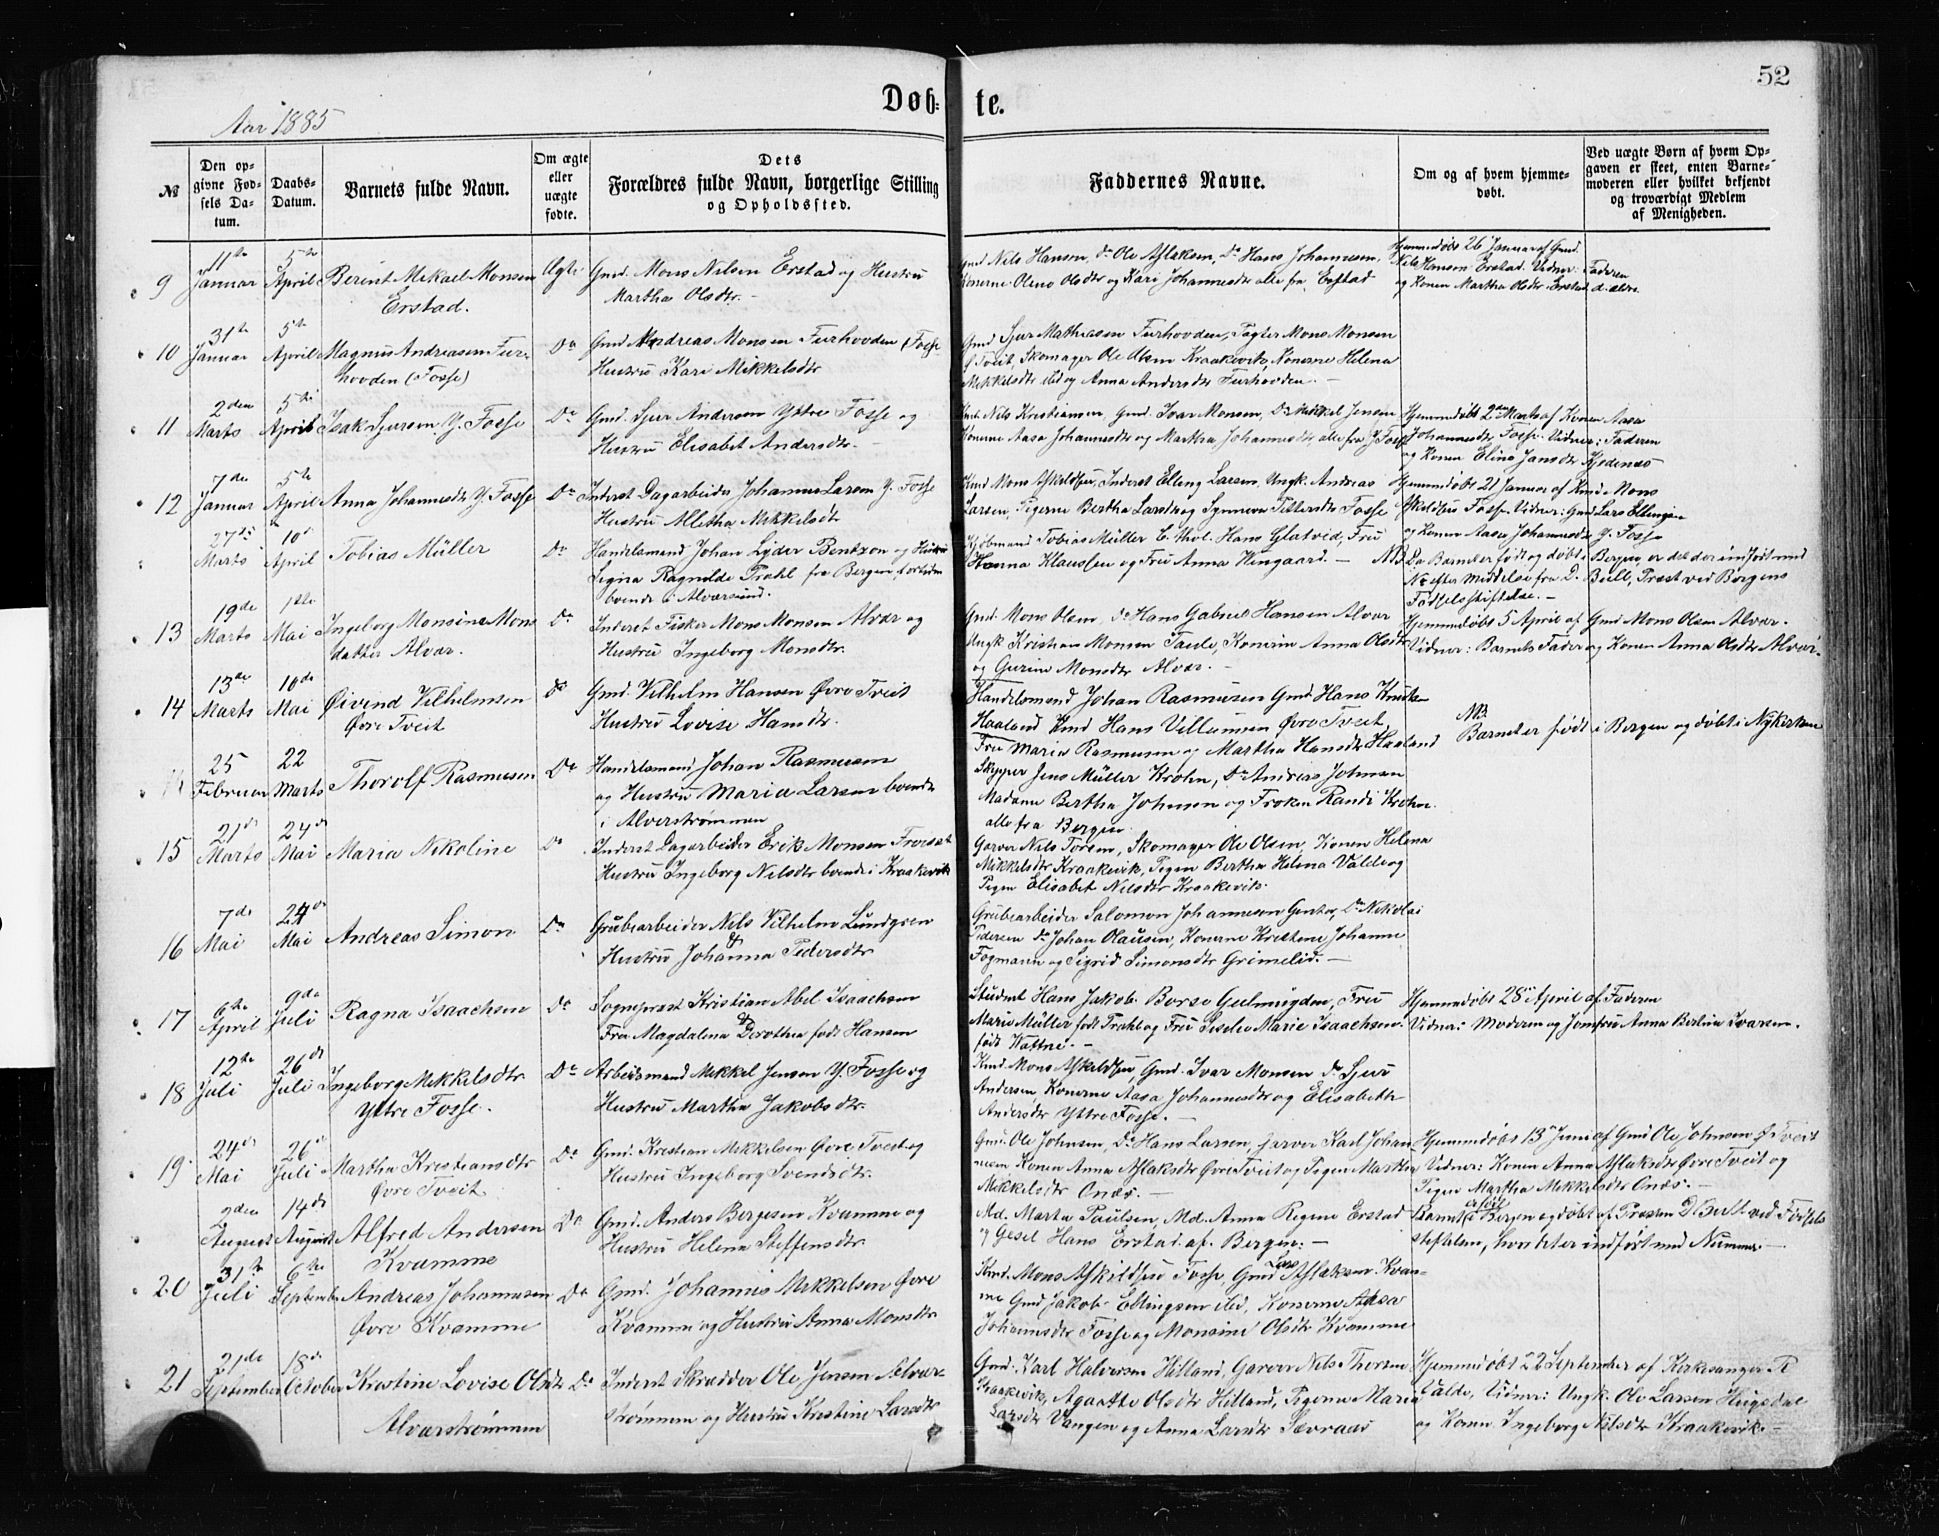 52
Døb- te.
Aar 1885
№
Den opgivne Fødsels Datum.
Daabs-Datum.
Barnets fulde Navn.
Om ægte eller uægte fødte.
Dets Forældres fulde Navn, borgerlige Stilling og Opholdssted.
Faddernes Navne.
Om og af hvem hjemmedøbt.
Ved uægte Børn af hvem Opgaven er skeet, enten Barnemoderen eller hvilket bekjendt og troværdigt Medlem af Menigheden.
9 11te Januar 5te April Berint Mikael Monsen Erstad. Ægte
Gmd. Mons Nilsen Erstad og Hustru
Martha Olsdtr. -
Gmd Nils Hansen, do Ole Aslaksen, Do Hans Johannesen,
Konerne Oleno Olsdtr og Kari Johannesdtr alle fra Erstad
Hjemmedøbt 26 Januar af Gmd.
Nils Hansen Erstad. Vidner: Faderen
og Konen Martha Olsdtr Erstad d. ældre
10 31te Januar 5te April Magnus Andreasen Furhovden (Fosse) Do
Gmd Andreas Monsen Furhovden (Fosse
Hustru Kari Mikkelsdtr
Gmd Sjur Mathiasen Furhovden, Pagter Mons Monsen
Tveit, Skomager Ole Olsen Kraakevik, Konerne Helena
Mikkelsdtr ibid og Anna Andersdtr Furhovden. -
11 2den Marts 5te April Isak Sjursen Y. Fosse Do
Gmd. Sjur Andersen Yttre Fosse og
Hustru Elisabet Andersdtr. -
Nils Kristiansen, Gmd. Ivar Monsen, Do Mikkel Jensen
Konerne Aasa Johannesdtr og Martha Johannesdtr alle fra Y Fosse
Hjemmedøbt 2den Marts af Konen Aasa
Johannesdtr Fosse. Vidner: Faderen
og Konen Elina Jansdtr
12 7de Januar 5te April Anna Johannesdtr Y. Fosse Do
Inderst Dagarbeider Johannes Larsen Y. Fosse
Hustru Alletha Mikkelsdtr
Kmd Mons Askildsen, Inderst Elling Larsen, Ungk. Andreas
Larsen, Pigerne Bertha Larsdtr og Synneva Fosse
Hjemmedøbt 21 Januar af Kmd Mons
Askildsen Fosse. Vidner: Gmd Lars Ellingsen
og Konen Aasa Johannesdtr Y. Fosse
27de Marts 10de April Tobias Müller Do
Handelsmand Johan Lyder Bentzon og Hustru
Signa Ragnilde Prahl fra Bergen, fortiden
boende i Alværsund.
Kjøbmand Tobias Müller E. thol. Hans Glatved, Fru
Hanna Klaussen og Fru Anna Wingaard. -
NB. Da Barnet er født og døbt i Bergen, er det der indført med
No efter Middelse fra D. Bull, Præst ved Bergens
Fødselsstiftelse. -
13 19de Marts 1ste Mai Ingeborg Monsine Monsdatter Alvær. Do
Inderst Fisker Mons Monsen Alvær og
Hustru Ingeborg Monsdtr.
Gmd. Mons Olsen, do Hans Gabriel Hansen Alvær
Ungk Kristian Monsen Taule, Konerne Anna Olsdtr
og Gurine Monsdtr Alvær. -
Hjemmedøbt 5 April af Gmd Mons Olsen Alvær.
Vidner: Barnets Fader og Konen Anna Olsdtr Alvær.
14 13de Marts 10de Mai Øivind Vilhelmsen Øvre Tveit do
Gmd. Vilhelm Hansen Øvre Tveit
Hustru Lovise Hansdtr.
Handelsmand Johan Rasmusen Gmd Hans Knutsen
Haaland Kmd Hans Villumsen Øvre Tveit,
Fru Maria Rasmusen og Martha Hansdtr Haaland
NB. Barnet er født i Bergen og døbt i Nykirken
25 Februar 22 Marts Thorolf Rasmusen Do
Handelsmand Johan Rasmusen
og Hustru Maria Larsen boende
i Alverstrømmen
Skipper Jens Müller Krohn, Do Andreas Johnsen
Madame Bertha Johnsen og Frøken Randi Krohn.
alle fra Bergen.
15 21de Marts 24de Mai Maria Nikoline Do
Inderst Dagarbeider Erik Monsen
Hustru Ingeborg Nilsdtr boende i Kraakevik
Garver Nils Torsen, Skomager Ole Olsen, Konen Helena
Mikkelsdtr Kraakevik, Pigen Bertha Helena Valde og
Pigen Elisabet Nilsdtr Kraakevik.
16 7de Mai 24de Mai Andreas Simon Do
Grubearbeider Nils Vilhelm Lundgren
Hustru Johanna Pedersdtr
Grubearbeider Salomon Johannesen, Do Nikolai
Pedersen do Johan Olausen, Konerne Kristene Johanne
Fogmann og Sigrid Simonsdtr Grimelid. -
17 6te April 9de Juli Ragna Isaachsen Do
Sogneprest Kristian Abel Isaachsen
Fru Magdalena Dorothea født Hansen
Student Hans Jakob Borse, Fru
Maria Müller født Prahl og Fru Marie Isaachsen
født -
Hjemmedøbt 28de April af Faderen
Vidner: Moderen og Jomfru Anna Berlina Ivarsen.
18 12te Juli 26de Juli Ingeborg Mikkelsdtr Yttre Fosse. Do
Arbeidsmand Mikkel Jensen Y. Fosse og
Hustru Martha Jakobsdtr.
Kmd. Mons Askildsen, Gmd. Ivar Monsen do Sjur
Andersen, Konerne Aasa Johannesdtr og Elisabeth
Andersdtr Yttre Fosse. -
19 24de Mai 26de Juli Martha Kristiansdtr Øvre Tveit Do
Gmd. Kristian Mikkelsen Øvre Tveit og
Hustru Ingeborg Svendsdtr.
Gmd. Ole Johnsen, Do Hans Larsen, Garver Karl Johan-
nesen Konen Anna Aslaksdtr Øvre Tveit og Pigen Martha
Mikkelsdtr Onæs. -
Hjemmedøbt 13de Juni af Gmd Ole Johnsen Ø Tveit
Vidner: Konen Anna Aslaksdtr Øvre Tveit og
Pigen Martha Mikkelsdtr Onæs. -
2den August 14de August Alfred Andersen Kvamme Do
Gmd. Anders Bergesen Kvamme og
Hustru Helena Steffensdtr.
Md. Marta Paulsen, Md. Anna Regine Erstad
og Gesel Hans Erstad af Bergen: -
Barnet er født i Bergen og døbt af Præsten D Bull ved Fødsels
stiftelsen, hvor det er indført med Nummer. -
20 31te Juli 6te September Andreas Johannesen Øvre Kvamme Do
Gmd. Johannes Mikkelsen Øvre
Kvamme og Hustru Anna Monsdtr
Kmd. Mons Askildsen Fosse, Gmd Lars Aslaksen Kvam-
me Gmd Jakob Ellingsen ibid, Konerne Aasa
Johannsdtr Fosse og Monsine Olsdtr Kvamme
21 21de September 18de October Kristine Lovise Olsdtr Alverstrømmen Do
Inderst Skrædder Ole Jensen Alver-
strømmen og Hustru Kristine Larsdtr
Gmd. Karl Halvorsen Hilland, Garver Nils Thorsen
Kraakevik, Agaatte Olsdtr Hilland, Pigerne Maria
Larsdtr Vangen og Anna Larsdtr Sævraas
Hjemmedøbt 22 September af Kirkesanger R
Valde, Vidner: Ungk. Ole Larsen Hugsdal
og Konen Ingeborg Nilsdtr Kraakevik. -